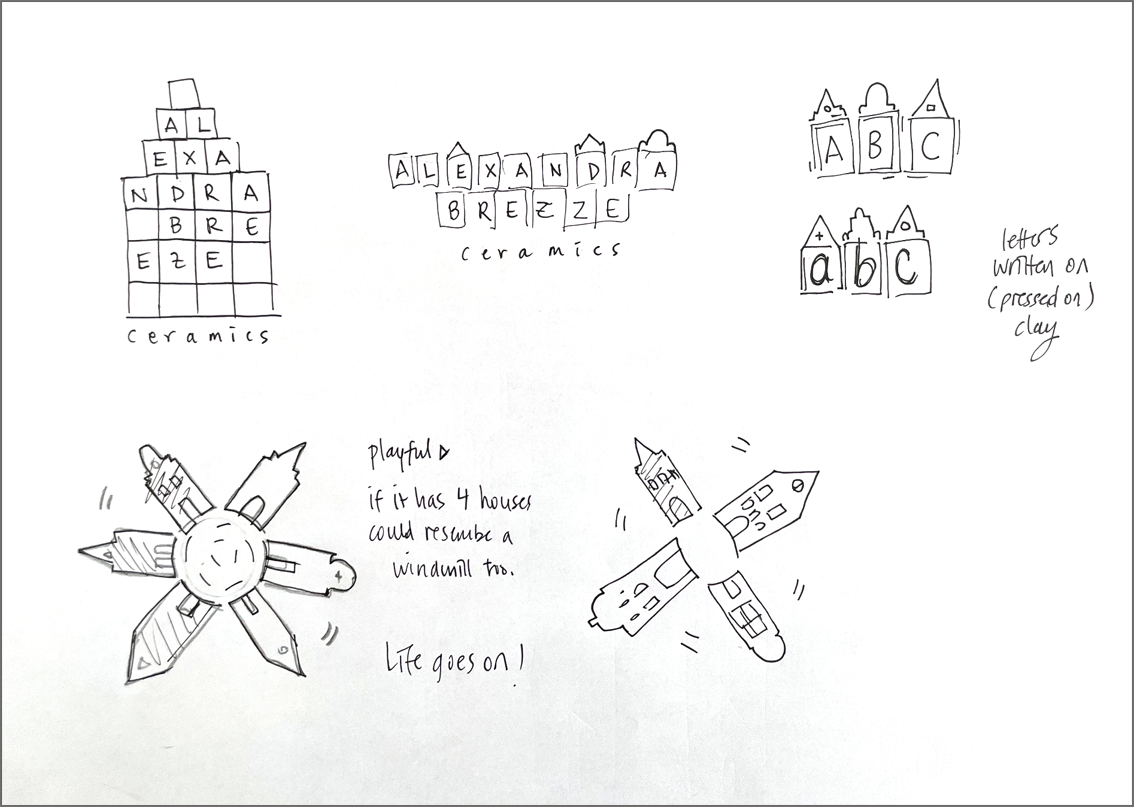 A L
E X A
N D R A
B R E
E Z E
ceramics
A L E X A N D R A
B R E Z Z E
ceramics
A B C
a b c
letters
written on
(pressed on)
clay
playful
if it has 4 houses
could resembe a
windmill too.
Life goes on!